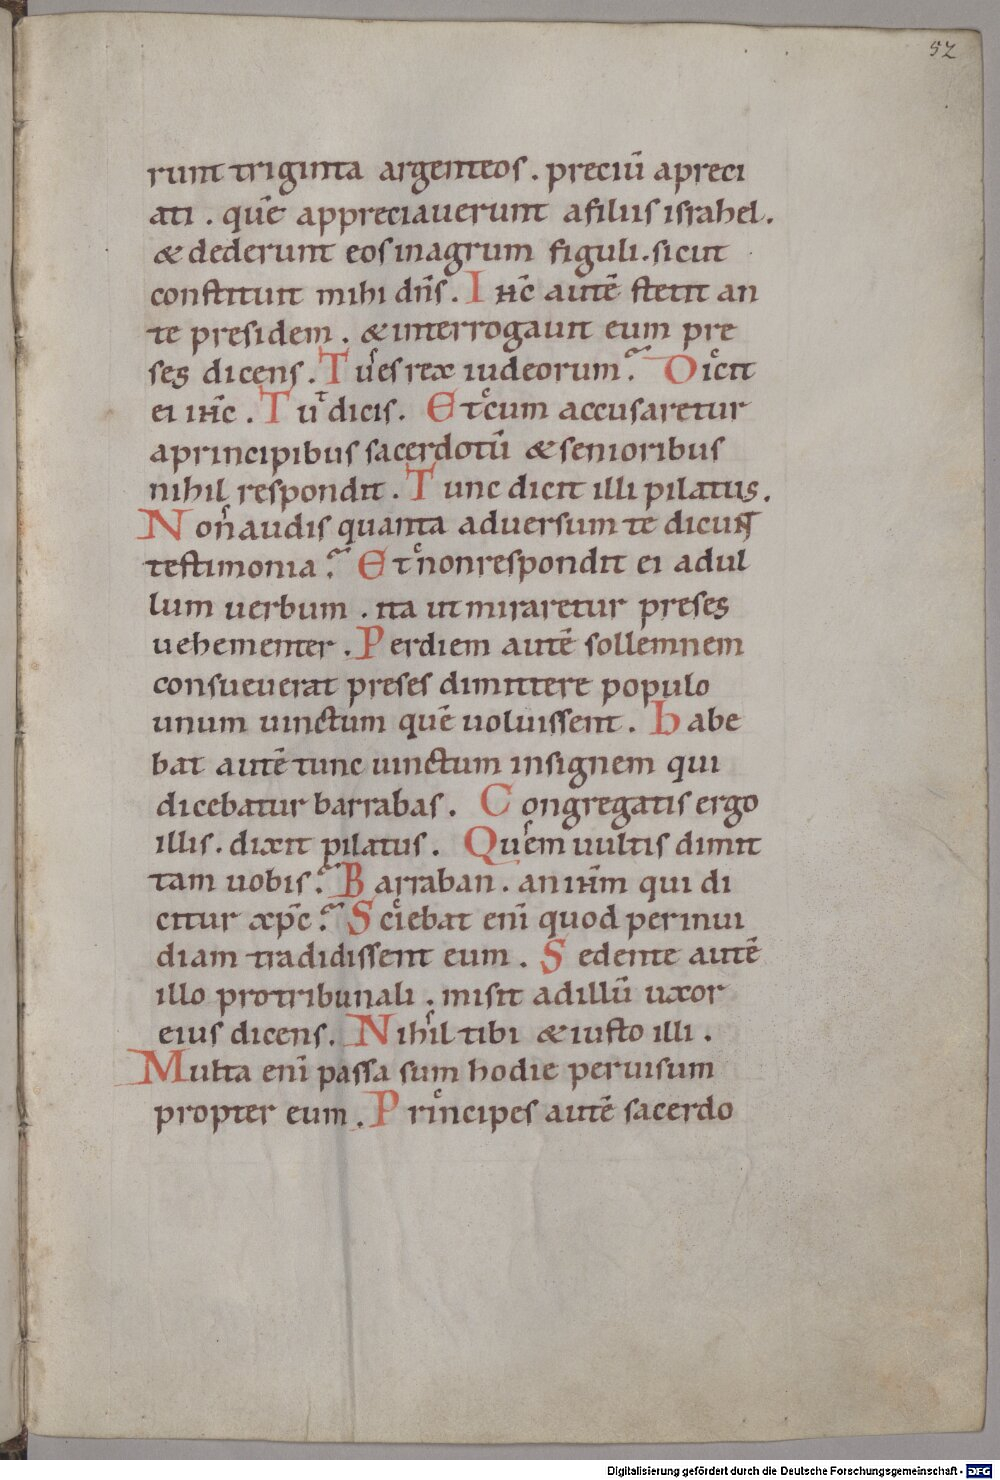 52
runt triginta argenteos . preciū apreci
ati . quē appreciauerunt afiliis israhel .
& dederunt eos inagrum figuli . sicut
constituit mihi dn̄s . Ihc̄ autē stetit an
te presidem . & interrogauit eum pre
ses dicens . Tu es rex iudeorum ? Dicit
ei ihc̄ . Tu dicis . Et cum accusaretur
aprincipibus sacerdotū & senioribus
nihil respondit . Tunc dicit illi pilatus .
Non audis quanta aduersum te dicunt
testimonia ? Et non respondit ei adul
lum uerbum . ita ut miraretur preses
uehementer . Per diem autē sollemnem
consueuerat preses dimittere populo
unum uinctum quē uoluissent . Habe
bat autē tunc uinctum insignem qui
dicebatur barrabas . Congregatis ergo
illis . dixit pilatus . Quem uultis dimit
tam uobis ? Barraban . an ihm̄ qui di
citur xpc̄ ? Sciebat enī quod per inui
diam tradidissent eum . Sedente autē
illo protribunali . misit adillū uxor
eius dicens . Nihil tibi & iusto illi .
Multa enī passa sum hodie peruisum
propter eum . Principes autē sacerdo
Digitalisierung gefördert durch die Deutsche Forschungsgemeinschaft - DFG